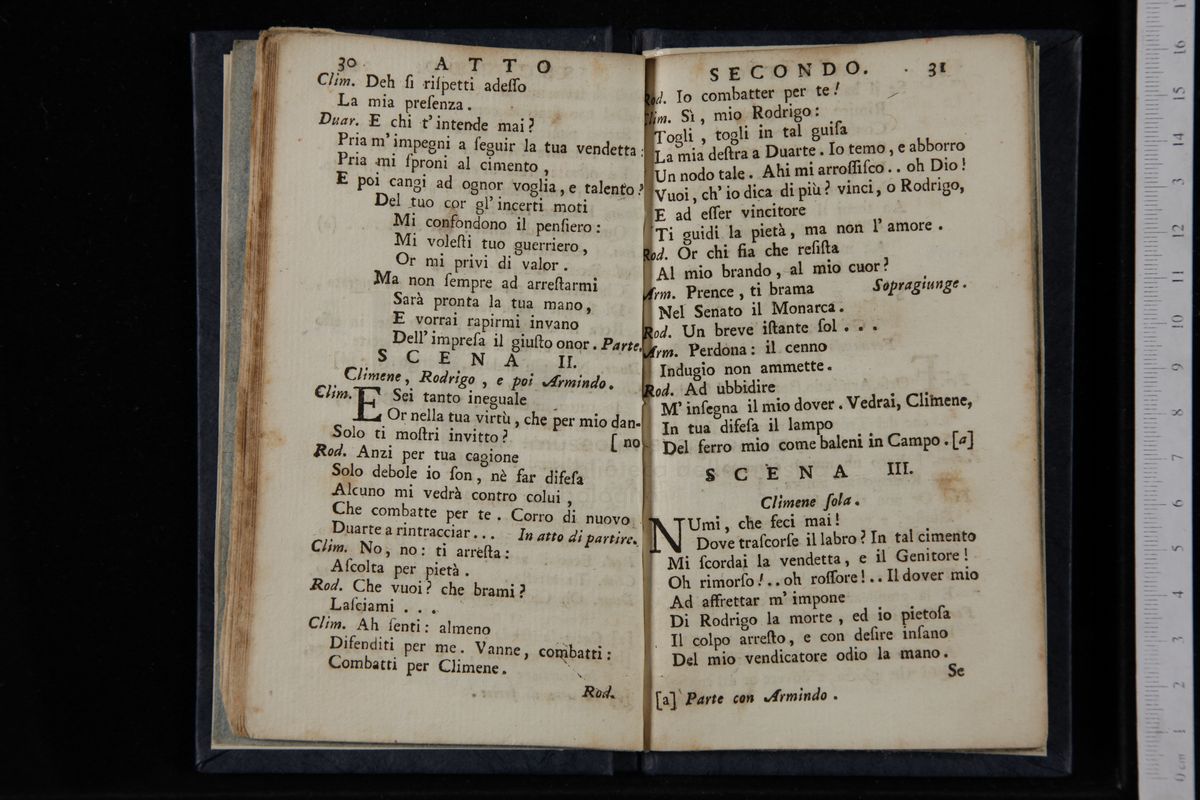 30 ATTO
Clim. Deh ſi riſpetti adeſſo
La mia preſenza.
Duar. E chi t'intende mai?
Pria m'impegni a ſeguir la tua vendetta:
Pria mi ſproni al cimento,
E poi cangi ad ognor voglia, e talento?
Del tuo cor gl'incerti moti
Mi confondono il penſiero:
Mi voleſti tuo guerriero,
Or mi privi di valor.
Ma non ſempre ad arreſtarmi
Sarà pronta la tua mano,
E vorrai rapirmi invano
Dell'impreſa il giuſto onor. Parte.
SCENA II.
Climene, Rodrigo, e poi Armindo.
Clim. E Sei tanto ineguale
Or nella tua virtù, che per mio dan-
Solo ti moſtri invitto? [no
Rod. Anzi per tua cagione
Solo debole io ſon, nè far difeſa
Alcuno mi vedrà contro colui,
Che combatte per te. Corro di nuovo
Duarte a rintracciar... In atto di partire.
Clim. No, no: ti arreſta:
Aſcolta per pietà.
Rod. Che vuoi? che brami?
Laſciami...
Clim. Ah ſenti: almeno
Difenditi per me. Vanne, combatti:
Combatti per Climene.
Rod.
SECONDO. 31
Rod. Io combatter per te!
Clim. Sì, mio Rodrigo:
Togli, togli in tal guiſa
La mia deſtra a Duarte. Io temo, e abborro
Un nodo tale. Ahi mi arroſſiſco.. oh Dio!
Vuoi, ch'io dica di più? vinci, o Rodrigo,
E ad eſſer vincitore
Ti guidi la pietà, ma non l'amore.
Rod. Or chi fia che reſiſta
Al mio brando, al mio cuor?
Arm. Prence, ti brama Sopragiunge.
Nel Senato il Monarca.
Rod. Un breve iſtante ſol...
Arm. Perdona: il cenno
Indugio non ammette.
Rod. Ad ubbidire
M'inſegna il mio dover. Vedrai, Climene,
In tua difeſa il lampo
Del ferro mio come baleni in Campo. [a]
SCENA III.
Climene ſola.
NUmi, che feci mai!
Dove traſcorſe il labro? In tal cimento
Mi ſcordai la vendetta, e il Genitore!
Oh rimorſo!..oh roſſore!..Il dover mio
Ad affrettar m'impone
Di Rodrigo la morte, ed io pietoſa
Il colpo arreſto, e con deſire inſano
Del mio vendicatore odio la mano.
Se
[a] Parte con Armindo.